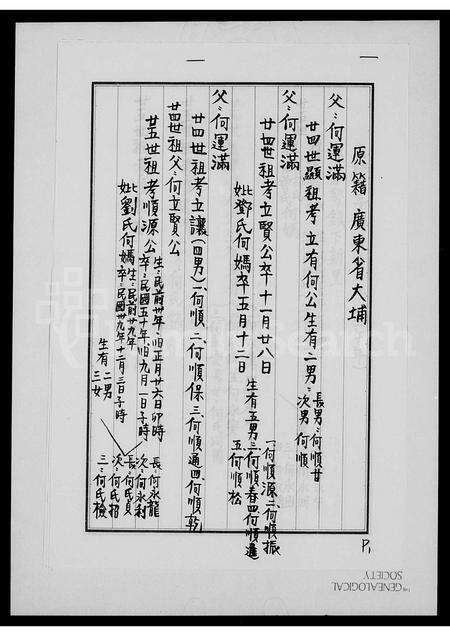 原籍 廣東省大埔
父:何運滿
廿四世顯祖考立有何公生有二男:長男:何順廿
次男 何順
父:何運滿
廿四世祖考立賢公卒十一月廿八日
妣鄧氏何媽卒五月十二日
生有五男:一何順源二何順振
三何順春四何順進
五何順松
父:何運滿
廿四世祖考立讓(四男)一何順 二何順保 三何順通 四何順乾
廿四世祖父:何立賢公
廿五世祖考順源公生:民前卅年旧正月廿六日卯時
卒:民國五十年旧九月一日子時
妣劉氏何媽生:民前廿九年
卒:民國廿九年十二月三日子時
生有二男
三女
長:何永龍
次:何永利
長:何氏員
次:何氏招
三:何氏檢
P1
THE GENEALOGICAL
SOCIETY
FamilySearch